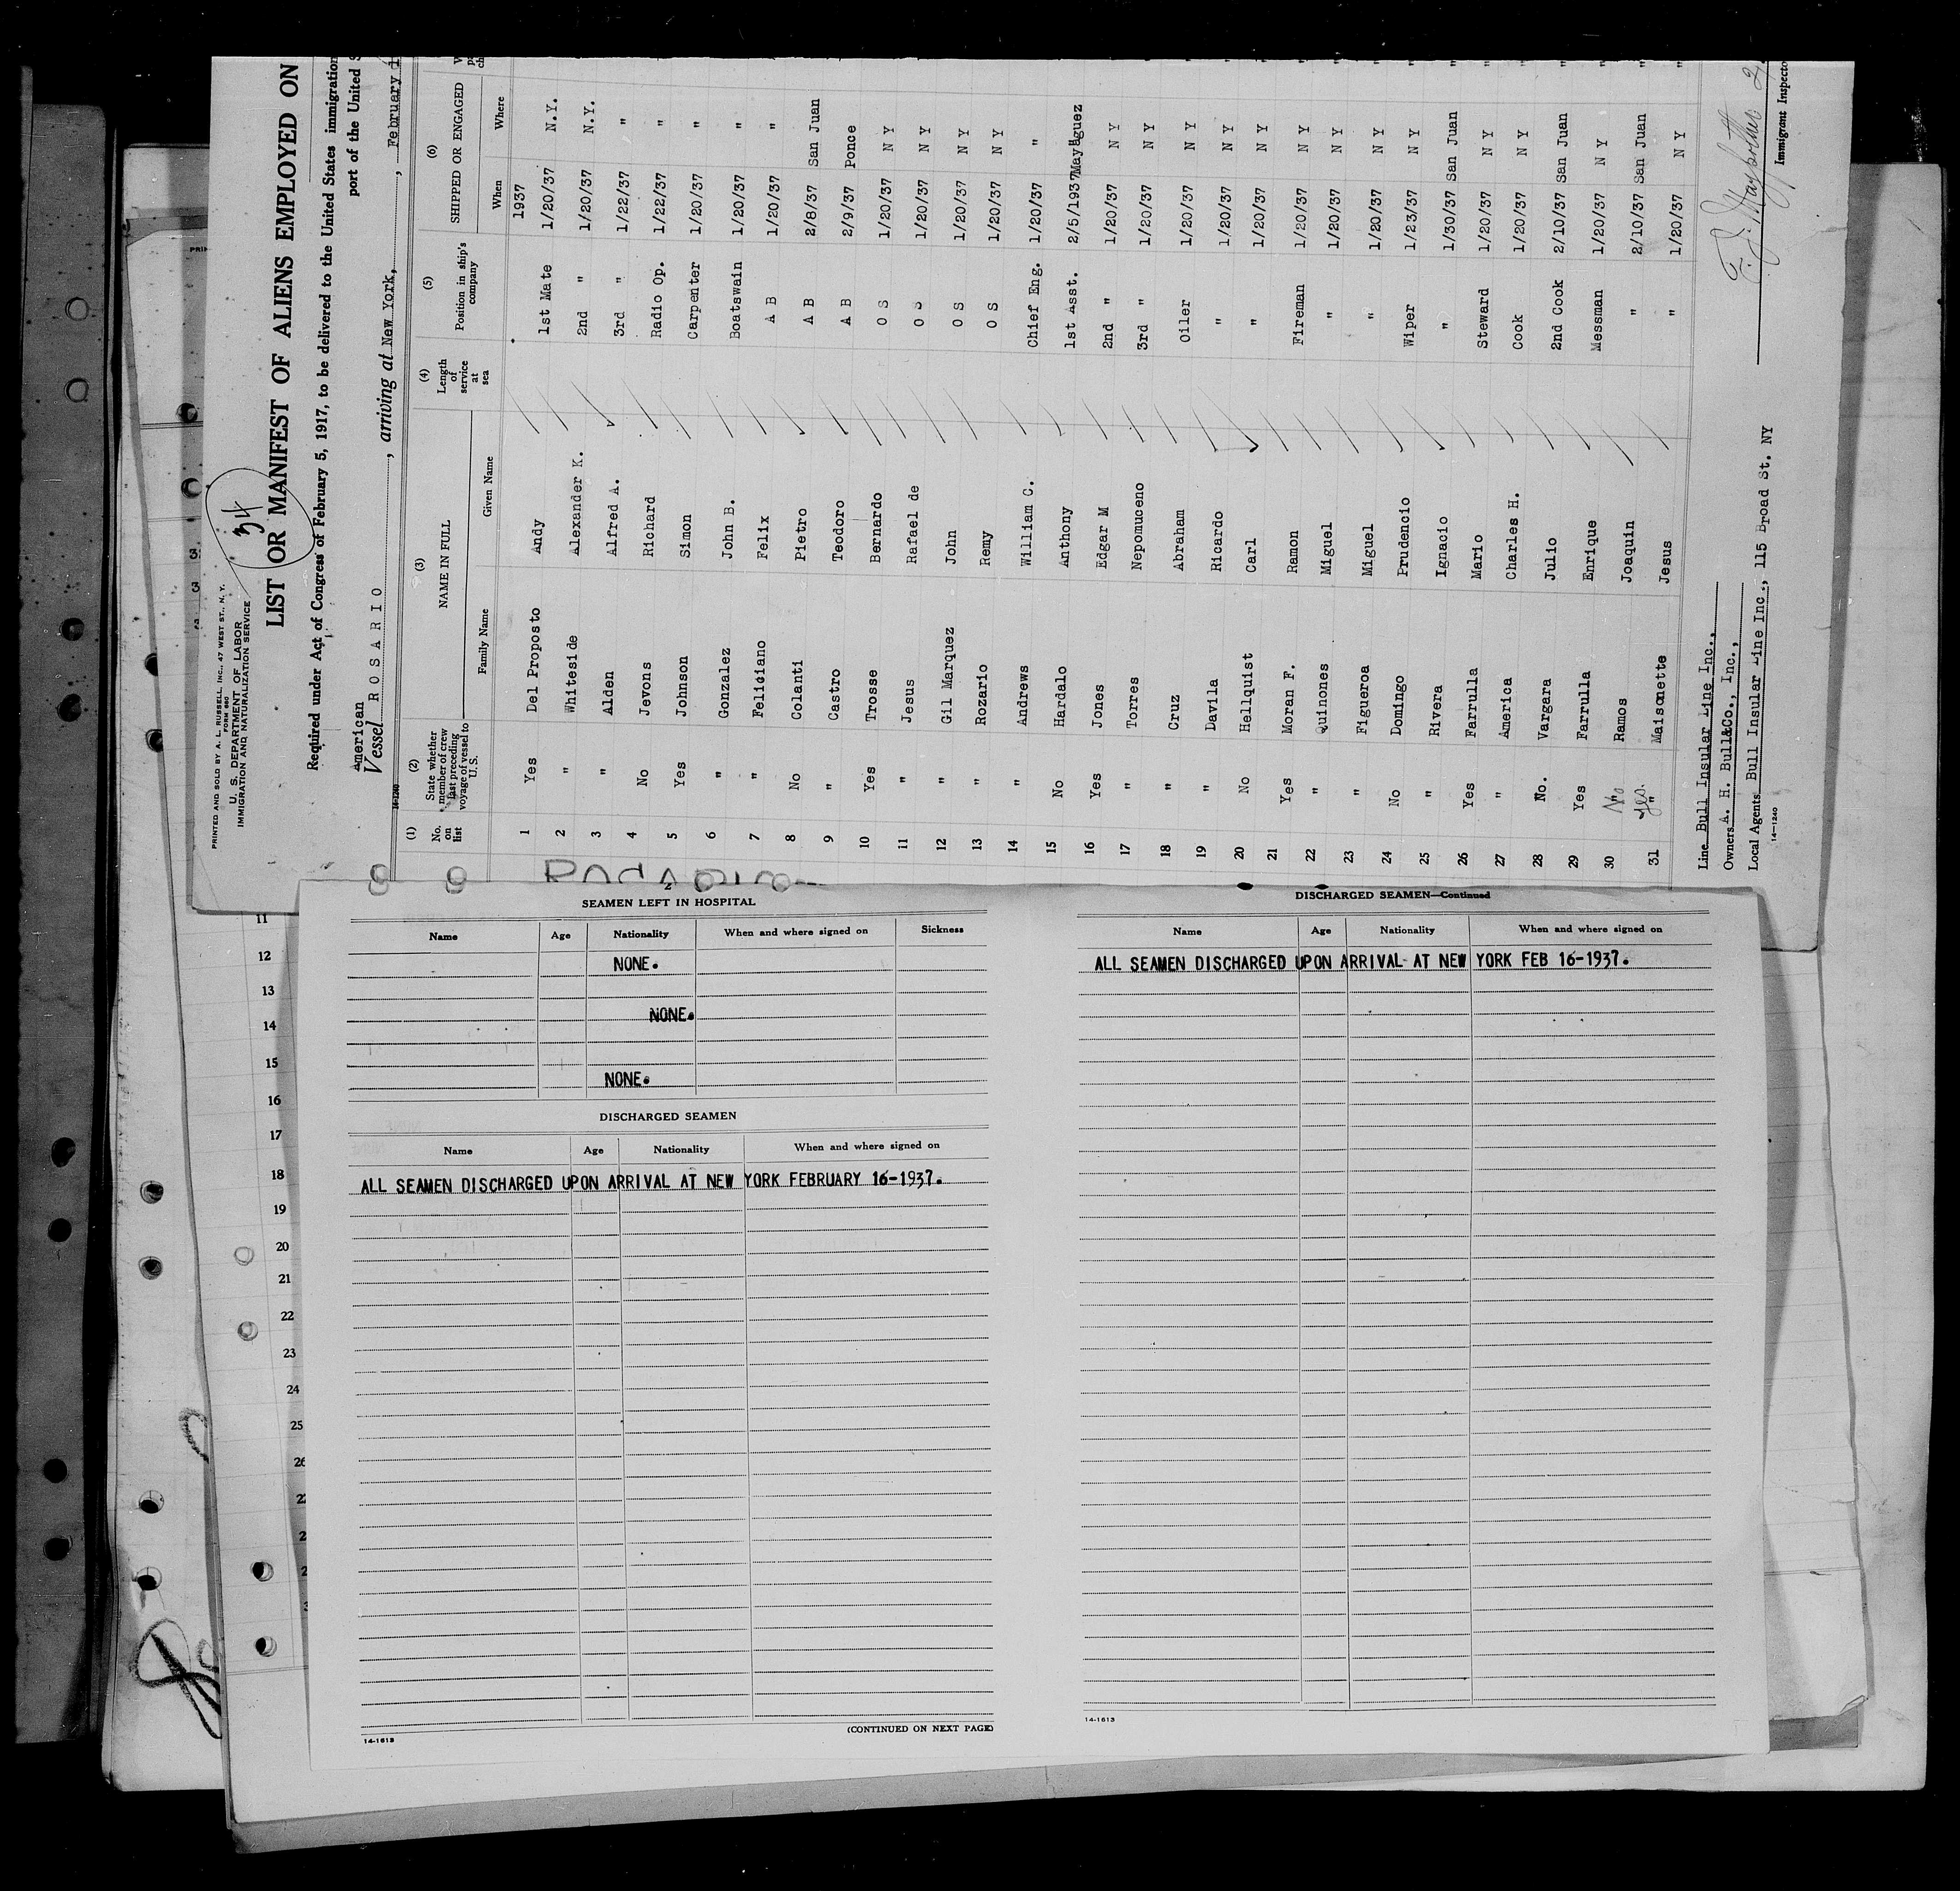 PRINTED AND SOLD BY A. L. RUSSELL, INC., 47 WEST ST., N. Y.
FORM 680
U. S. DEPARTMENT OF LABOR
IMMIGRATION AND NATURALIZATION SERVICE
34
LIST OR MANIFEST OF ALIENS EMPLOYED ON
Required under Act of Congress of February 5, 1917, to be delivered to the United States immigration
port of the United S
American
Vessel ROSARIO, arriving at New York, February
14-1240
(1) No. on list (2) State whether member of crew last preceding voyage of vessel to U.S. (3) NAME IN FULL (4) Length of service at sea (5) Position in ship's company (6) SHIPPED OR ENGAGED
Family Name Given Name When Where
1937
1 Yes Del Proposto Andy 1st Mate 1/20/37 N.Y.
2 " Whiteside Alexander K. 2nd " 1/20/37 N.Y.
3 " Alden Alfred A. 3rd " 1/22/37 "
4 No Jevons Richard Radio Op. 1/22/37 "
5 Yes Johnson Simon Carpenter 1/20/37 "
6 " Gonzalez John B. Boatswain 1/20/37 "
7 " Feliciano Felix A B 1/20/37 "
8 No Colanti Pietro A B 2/8/37 San Juan
9 " Castro Teodoro A B 2/9/37 Ponce
10 Yes Trosse Bernardo O S 1/20/37 N Y
11 " Jesus Rafael de O S 1/20/37 N Y
12 " Gil Marquez John O S 1/20/37 N Y
13 " Rozario Remy O S 1/20/37 N Y
14 " Andrews William C. Chief Eng. 1/20/37 "
15 No Hardalo Anthony 1st Asst. 2/5/1937 Mayaguez
16 Yes Jones Edgar M 2nd " 1/20/37 N Y
17 " Torres Nepomuceno 3rd " 1/20/37 N Y
18 " Cruz Abraham Oiler 1/20/37 N Y
19 " Davila Ricardo " 1/20/37 N Y
20 No Hellquist Carl " 1/20/37 N Y
21 Yes Moran F. Ramon Fireman 1/20/37 N Y
22 " Quinones Miguel " 1/20/37 N Y
23 " Figueroa Miguel " 1/20/37 N Y
24 No Domingo Prudencio Wiper 1/23/37 N Y
25 " Rivera Ignacio " 1/30/37 San Juan
26 Yes Farrulla Mario Steward 1/20/37 N Y
27 " America Charles H. Cook 1/20/37 N Y
28 No. Vargara Julio 2nd Cook 2/10/37 San Juan
29 Yes Farrulla Enrique Messman 1/20/37 N Y
30 No Ramos Joaquin " 2/10/37 San Juan
31 yes. " Maisonette Jesus " 1/20/37 N Y
Line Bull Insular Line Inc.,
Owners A. H. Bull&Co., Inc.,
Local Agents Bull Insular Line Inc., 115 Broad St. NY
Immigrant Inspecto
14-1240
11
12
13
14
15
16
17
18
19
20
21
22
23
24
25
2
SEAMEN LEFT IN HOSPITAL
Name Age Nationality When and where signed on Sickness
NONE.
NONE.
NONE.
DISCHARGED SEAMEN
Name Age Nationality When and where signed on
ALL SEAMEN DISCHARGED UPON ARRIVAL AT NEW YORK FEBRUARY 16-1937.
(CONTINUED ON NEXT PAGE)
14-1613
DISCHARGED SEAMEN—Continued
Name Age Nationality When and where signed on
ALL SEAMEN DISCHARGED UPON ARRIVAL AT NEW YORK FEB 16-1937.
14-1613